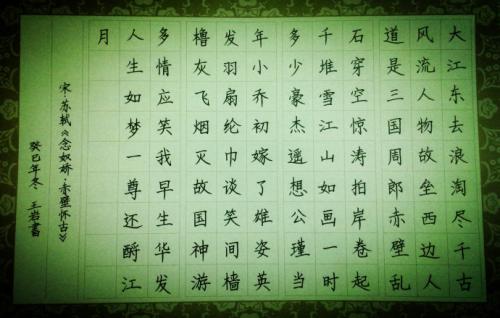 大江东去浪淘尽千古
风流人物故垒西边人
道是三国周郎赤壁乱
石穿空惊涛拍岸卷起
千堆雪江山如画一时
多少豪杰遥想公瑾当
年小乔初嫁了雄姿英
发羽扇纶巾谈笑间樯
橹灰飞烟灭故国神游
多情应笑我早生华发
人生如梦一尊还酹江
月
宋·苏轼《念奴娇·赤壁怀古》
癸巳年冬 王岩書